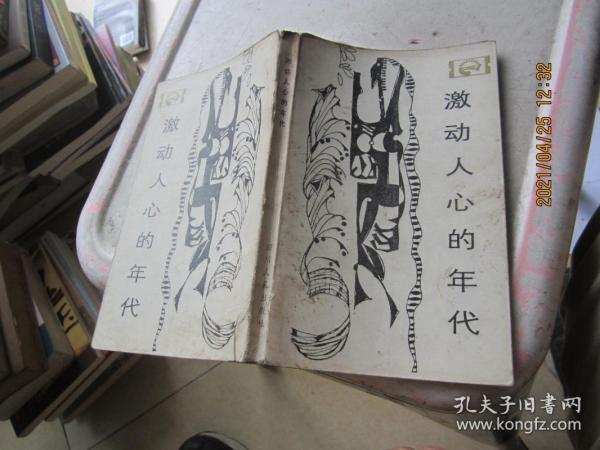 激动人心的年代
激动人心的年代
激动人心的年代
2021/04/25 12:32
孔夫子旧書网
www.kongfz.com